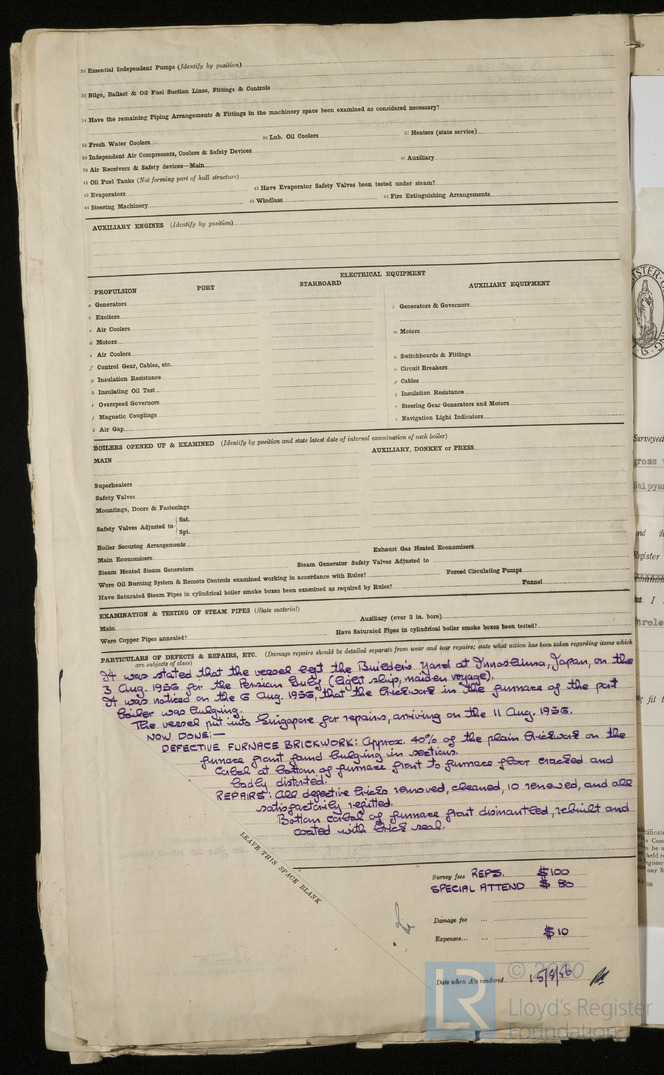 32 Essential Independent Pumps (Identify by position)
33 Bilge, Ballast & Oil Fuel Suction Lines, Fittings & Controls
34 Have the remaining Piping Arrangements & Fittings in the machinery space been examined as considered necessary?
35 Fresh Water Coolers 36 Lub. Oil Coolers 37 Heaters (state service)
38 Independent Air Compressors, Coolers & Safety Devices
39 Air Receivers & Safety devices—Main 40 Auxiliary
41 Oil Fuel Tanks (Not forming part of hull structure)
42 Evaporators 43 Have Evaporator Safety Valves been tested under steam?
44 Steering Machinery 45 Windlass 46 Fire Extinguishing Arrangements
AUXILIARY ENGINES (Identify by position)
ELECTRICAL EQUIPMENT
PROPULSION PORT STARBOARD AUXILIARY EQUIPMENT
a Generators l Generators & Governors
b Exciters
c Air Coolers m Motors
d Motors
e Air Coolers n Switchboards & Fittings
f Control Gear, Cables, etc. o Circuit Breakers
g Insulation Resistance p Cables
h Insulating Oil Test r Insulation Resistance
i Overspeed Governors s Steering Gear Generators and Motors
j Magnetic Couplings t Navigation Light Indicators
k Air Gap
BOILERS OPENED UP & EXAMINED (Identify by position and state latest date of internal examination of each boiler)
MAIN AUXILIARY, DONKEY or PRESS.
Superheaters
Safety Valves
Mountings, Doors & Fastenings
Safety Valves Adjusted to Sat. Spt.
Boiler Securing Arrangements Exhaust Gas Heated Economisers
Main Economisers Steam Generator Safety Valves Adjusted to
Steam Heated Steam Generators Forced Circulating Pumps
Were Oil Burning System & Remote Controls examined working in accordance with Rules? Funnel
Have Saturated Steam Pipes in cylindrical boiler smoke boxes been examined as required by Rules?
EXAMINATION & TESTING OF STEAM PIPES (State material)
Main Auxiliary (over 3 in. bore)
Were Copper Pipes annealed? Have Saturated Pipes in cylindrical boiler smoke boxes been tested?
PARTICULARS OF DEFECTS & REPAIRS, ETC. (Damage repairs should be detailed separate from wear and tear repairs; state what action has been taken regarding items which are subjects of class)
It was stated that the vessel left the Builders Yard at Innoshima, Japan, on the
3 Aug. 1956 for the Persian Gulf (light ship, maiden voyage).
It was noticed on the 6 Aug. 1956, that the brickwork in the furnace of the port
boiler was bulging.
The vessel put into Singapore for repairs, arriving on the 11 Aug. 1956.
NOW DONE:—
DEFECTIVE FURNACE BRICKWORK: Approx. 40% of the plain brickwork on the
furnace front found bulging in sections.
Corbal at bottom of furnace front to furnace floor cracked and
badly distorted.
REPAIRS: All defective bricks removed, cleaned, 10 renewed, and all
satisfactorily refitted.
Bottom corbal of furnace front dismantled, rebuilt and
coated with brick seal.
LEAVE THIS SPACE BLANK
Survey fees REPS. $100
SPECIAL ATTEND $ 80
Damage fee
Expenses $10
Date when A/c rendered 15/8/56
© 2020
LR
Lloyd's Register
Foundation
Surveyed
gross
Shipya
Register